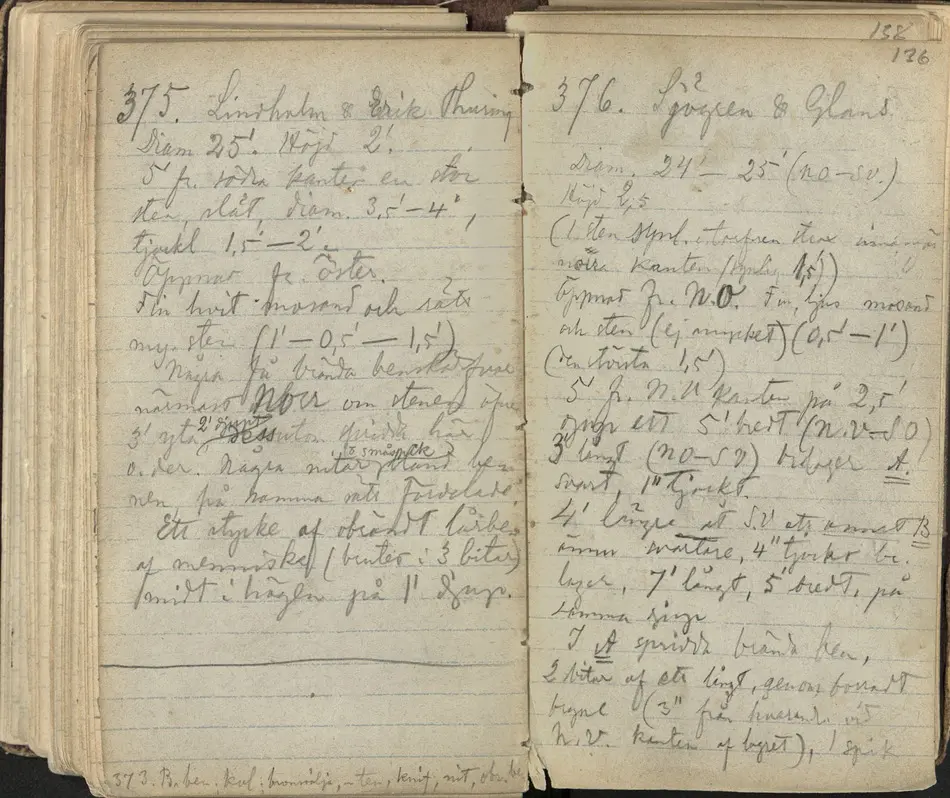 375. Lindholm & Erik Thuring
Diam 25'. Höjd 2'.
5' fr. södra kanten en stor
sten, slät, diam. 3,5'–4',
tjockl 1,5'–2'.
Öppnad fr. öster.
Fin hvit mosand och
sten (1'–0,5'–1,5')
Några få brända benskärfvor
närmast under om stenen
3' yta 2' djupt dessutom spridda här
o. der. Några nitar o småspik bland be-
nen, på samma sätt fördelade.
Ett stycke af obrändt lårben
af menniska (brutet i 3 bitar)
midt i högen på 1' djup.
373. B. ben, kol, ten, knif, nit, obr. be
138
136
376. Sjögren & Glans
Diam. 24'–25' (NO–SV.)
Höjd 2,5
(1 sten synl. i torfven strax
norra kanten (synlig 1,5'))
Öppnad fr. N.O. Fin, ljus mosand
och sten (ej mycket) (0,5'–1')
(den största 1,5')
5' fr. N.O kanten på 2,5'
djup ett 5' bredt (N.V–SO)
3' långt (NO–SV) brandlager A.
svart, 1" tjockt.
4' längre åt S.V ett annat B
ännu svartare, 4" tjockt
lager, 7' långt, 5' bredt, på
samma djup
I A spridda brända ben,
2 bitar af ett långt, genomborradt
bryne (3" från hvarandr. vid
N.V. kanten af lagret), 1 spik